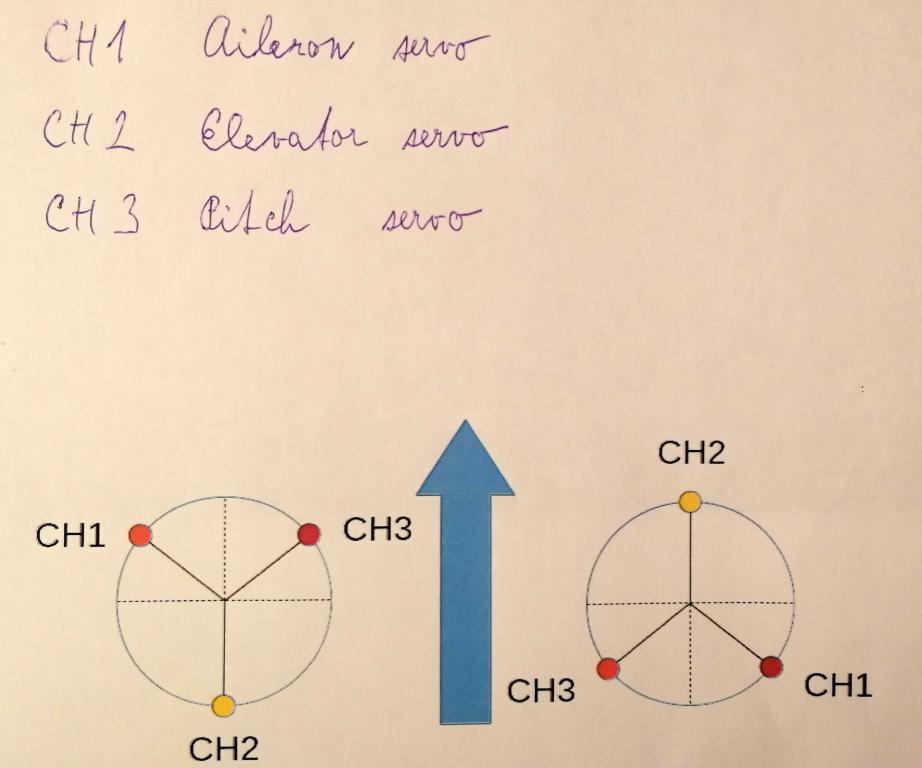 CH1 Aileron servo
CH2 Elevator servo
CH3 Pitch servo
CH2
CH1 CH3
CH3 CH1
CH2